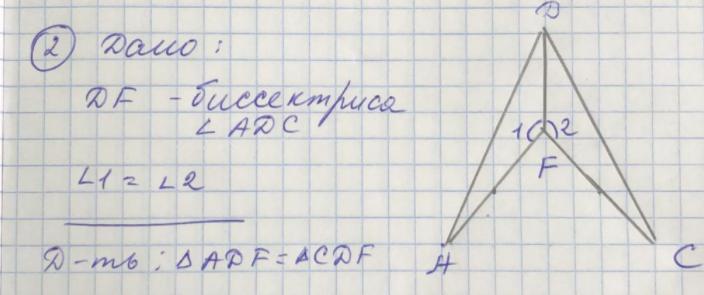 ② Дано:
DF - биссектриса
∠ADC
∠1 = ∠2
Д-ть: △ADF = △CDF
D
1 2
F
A C